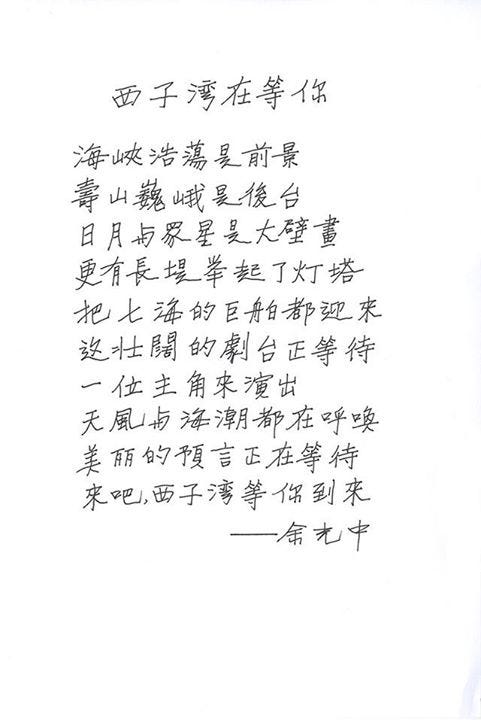 西子湾在等你
海峽浩蕩是前景
壽山巍峨是後台
日月与眾星是大壁畫
更有長堤举起了灯塔
把七海的巨舶都迎來
这壮闊的劇台正等待
一位主角來演出
天風与海潮都在呼喚
美丽的預言正在等待
來吧,西子湾等你到來
——余光中